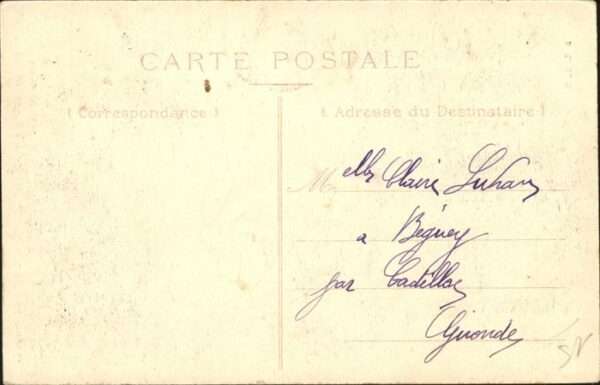 CARTE POSTALE
(Correspondance)
(Adresse du Destinataire)
Melle Claire
a Béguey
par Cadillac
Gironde